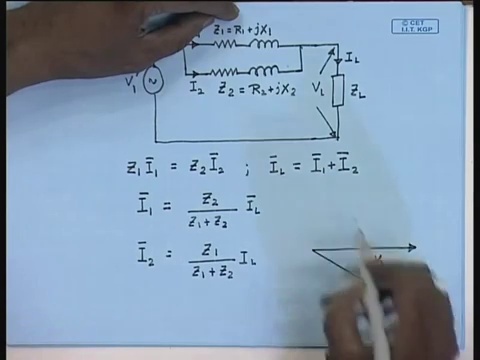 © CET
I.I.T. KGP
Z₁ = R₁ + jX₁
I_L
I₂ Z₂ = R₂ + jX₂
V₁ ~ V_L Z_L
Z₁ Ī₁ = Z₂ Ī₂ ; Ī_L = Ī₁ + Ī₂
Ī₁ = Z₂ / (Z₁ + Z₂) Ī_L
Ī₂ = Z₁ / (Z₁ + Z₂) I_L